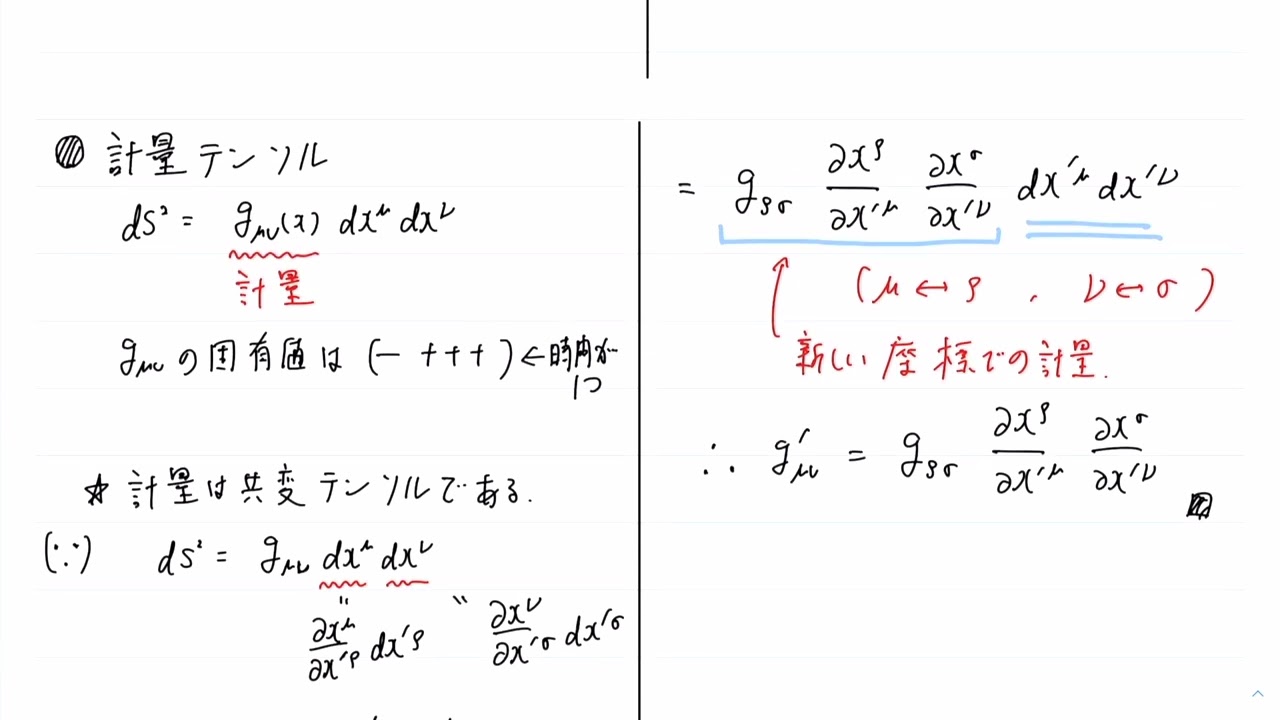 計量テンソル
ds² = g_μν(x) dx^μ dx^ν
計量
g_μν の固有値は (− + + +) ← 時間が
1つ
☆ 計量は共変テンソルである.
(∵) ds² = g_μν dx^μ dx^ν
∂x^μ/∂x'^ρ dx'^ρ ∂x^ν/∂x'^σ dx'^σ
= g_ρσ ∂x^ρ/∂x'^μ ∂x^σ/∂x'^ν dx'^μ dx'^ν
(μ ↔ ρ , ν ↔ σ)
新しい座標での計量.
∴ g'_μν = g_ρσ ∂x^ρ/∂x'^μ ∂x^σ/∂x'^ν